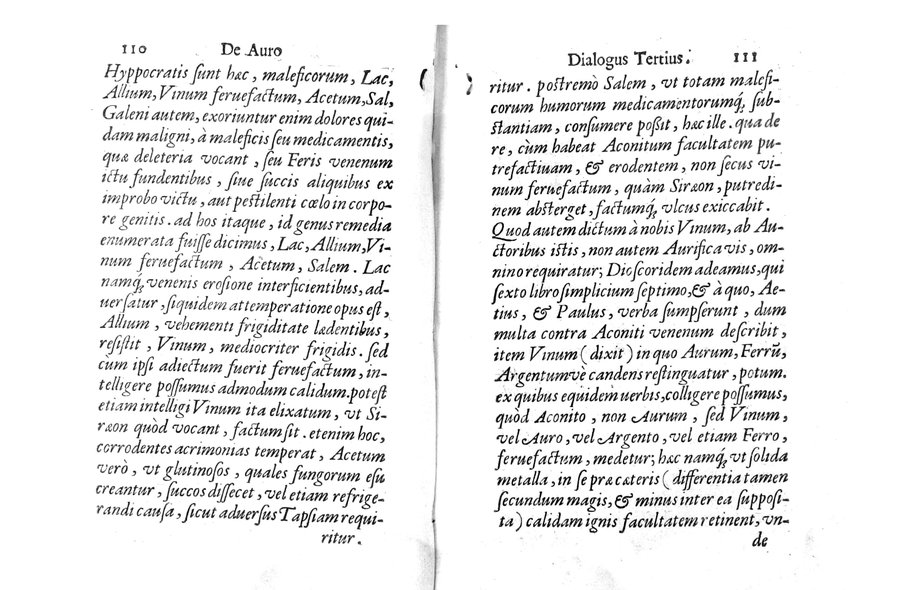 110 De Auro
Hyppocratis sunt hæc, maleficorum, Lac,
Allium, Vinum feruefactum, Acetum, Sal,
Galeni autem, exoriuntur enim dolores qui-
dam maligni, à maleficis seu medicamentis,
quæ deleteria vocant, seu Feris venenum
ictu fundentibus, siue succis aliquibus ex
improbo victu, aut pestilenti cœlo in corpo-
re genitis. ad hos itaque, id genus remedia
enumerata fuisse dicimus, Lac, Allium, Vi-
num feruefactum, Acetum, Salem. Lac
namq; venenis erosione interficientibus, ad-
uersatur, siquidem attemperatione opus est,
Allium, vehementi frigiditate lædentibus,
resistit, Vinum, mediocriter frigidis. sed
cum ipsi adiectum fuerit feruefactum, in-
telligere possumus admodum calidum. potest
etiam intelligi Vinum ita elixatum, vt Si-
ræon quòd vocant, factum sit. etenim hoc,
corrodentes acrimonias temperat, Acetum
verò, vt glutinosos, quales fungorum esu
creantur, succos dissecet, vel etiam refrige-
randi causa, sicut aduersus Tapsiam requi-
ritur.
Dialogus Tertius. 111
ritur. postremò Salem, vt totam malefi-
corum humorum medicamentorumq; sub-
stantiam, consumere possit, hæc ille. qua de
re, cùm habeat Aconitum facultatem pu-
trefactiuam, & erodentem, non secus vi-
num feruefactum, quàm Siræon, putredi-
nem absterget, factumq; vlcus exiccabit.
Quod autem dictum à nobis Vinum, ab Au-
ctoribus istis, non autem Aurifica vis, om-
nino requiratur; Dioscoridem adeamus, qui
sexto libro simplicium septimo, & à quo, Ae-
tius, & Paulus, verba sumpserunt, dum
multa contra Aconiti venenum describit,
item Vinum (dixit) in quo Aurum, Ferrũ,
Argentumvè candens restinguatur, potum.
ex quibus equidem uerbis, colligere possumus,
quòd Aconito, non Aurum, sed Vinum,
vel Auro, vel Argento, vel etiam Ferro,
feruefactum, medetur; hæc namq; vt solida
metalla, in se præ cæteris (differentia tamen
secundum magis, & minus inter ea supposi-
ta) calidam ignis facultatem retinent, vn-
de